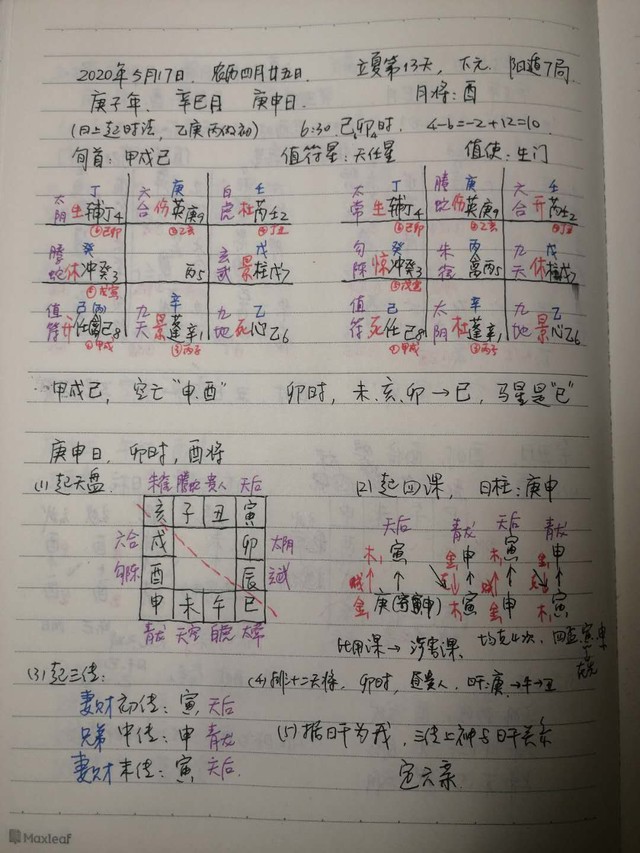 2020年5月17日. 农历四月廿五日. 立夏第13天, 下元. 阳遁7局.
庚子年. 辛巳月 庚申日. 月将:酉
(日上起时法, 乙庚丙作初) 6:30 己卯时. 4-6=-2+12=10.
旬首:甲戌己 值符星:天任星 值使:生门
太阴 丁 生辅丁4 ⑥己卯 六合 庚 伤英庚9 ②乙亥 白虎 壬 杜芮壬2 ④丁丑
太常 丁 生辅丁4 ⑥己卯 螣蛇 庚 伤英庚9 ②乙亥 六合 壬 开芮壬2 ④丁丑
螣蛇 癸 休冲癸3 ⑤戊寅 丙5 玄武 戊 景柱戊7
勾陈 癸 惊冲癸3 ⑤戊寅 朱雀 丙 禽丙5 九天 戊 休柱戊7
值符 己(丙) 开任禽己8 ①甲戌 九天 辛 景蓬辛1 ③丙子 九地 乙 死心乙6
值符 己 死任己8 ①甲戌 太阴 辛 杜蓬辛1 ③丙子 九地 乙 景心乙6
甲戌己, 空亡"申.酉" 卯时, 未.亥.卯→巳, 马星是"巳"
庚申日, 卯时, 酉将
(1)起天盘. 朱雀 螣蛇 贵人 天后 (2)起四课, 日柱:庚申
亥 子 丑 寅
六合 戌 卯 太阴
勾陈 酉 辰 玄武
申 未 午 巳
青龙 天空 白虎 太常
天后 青龙 天后 青龙
木 寅 金 申 木 寅 金 申
金 庚(寄申) 木 寅 金 申 木 寅
比用课→涉害课, 均克4次, 四孟寅申
(3)起三传: (4)排十二天将, 卯时, 昼贵人, 日干:庚→牛→丑
妻财 初传:寅, 天后
兄弟 中传:申 青龙 (5)据日干为我, 三传上神与日干关系
妻财 末传:寅, 天后. 定六亲.
Maxleaf